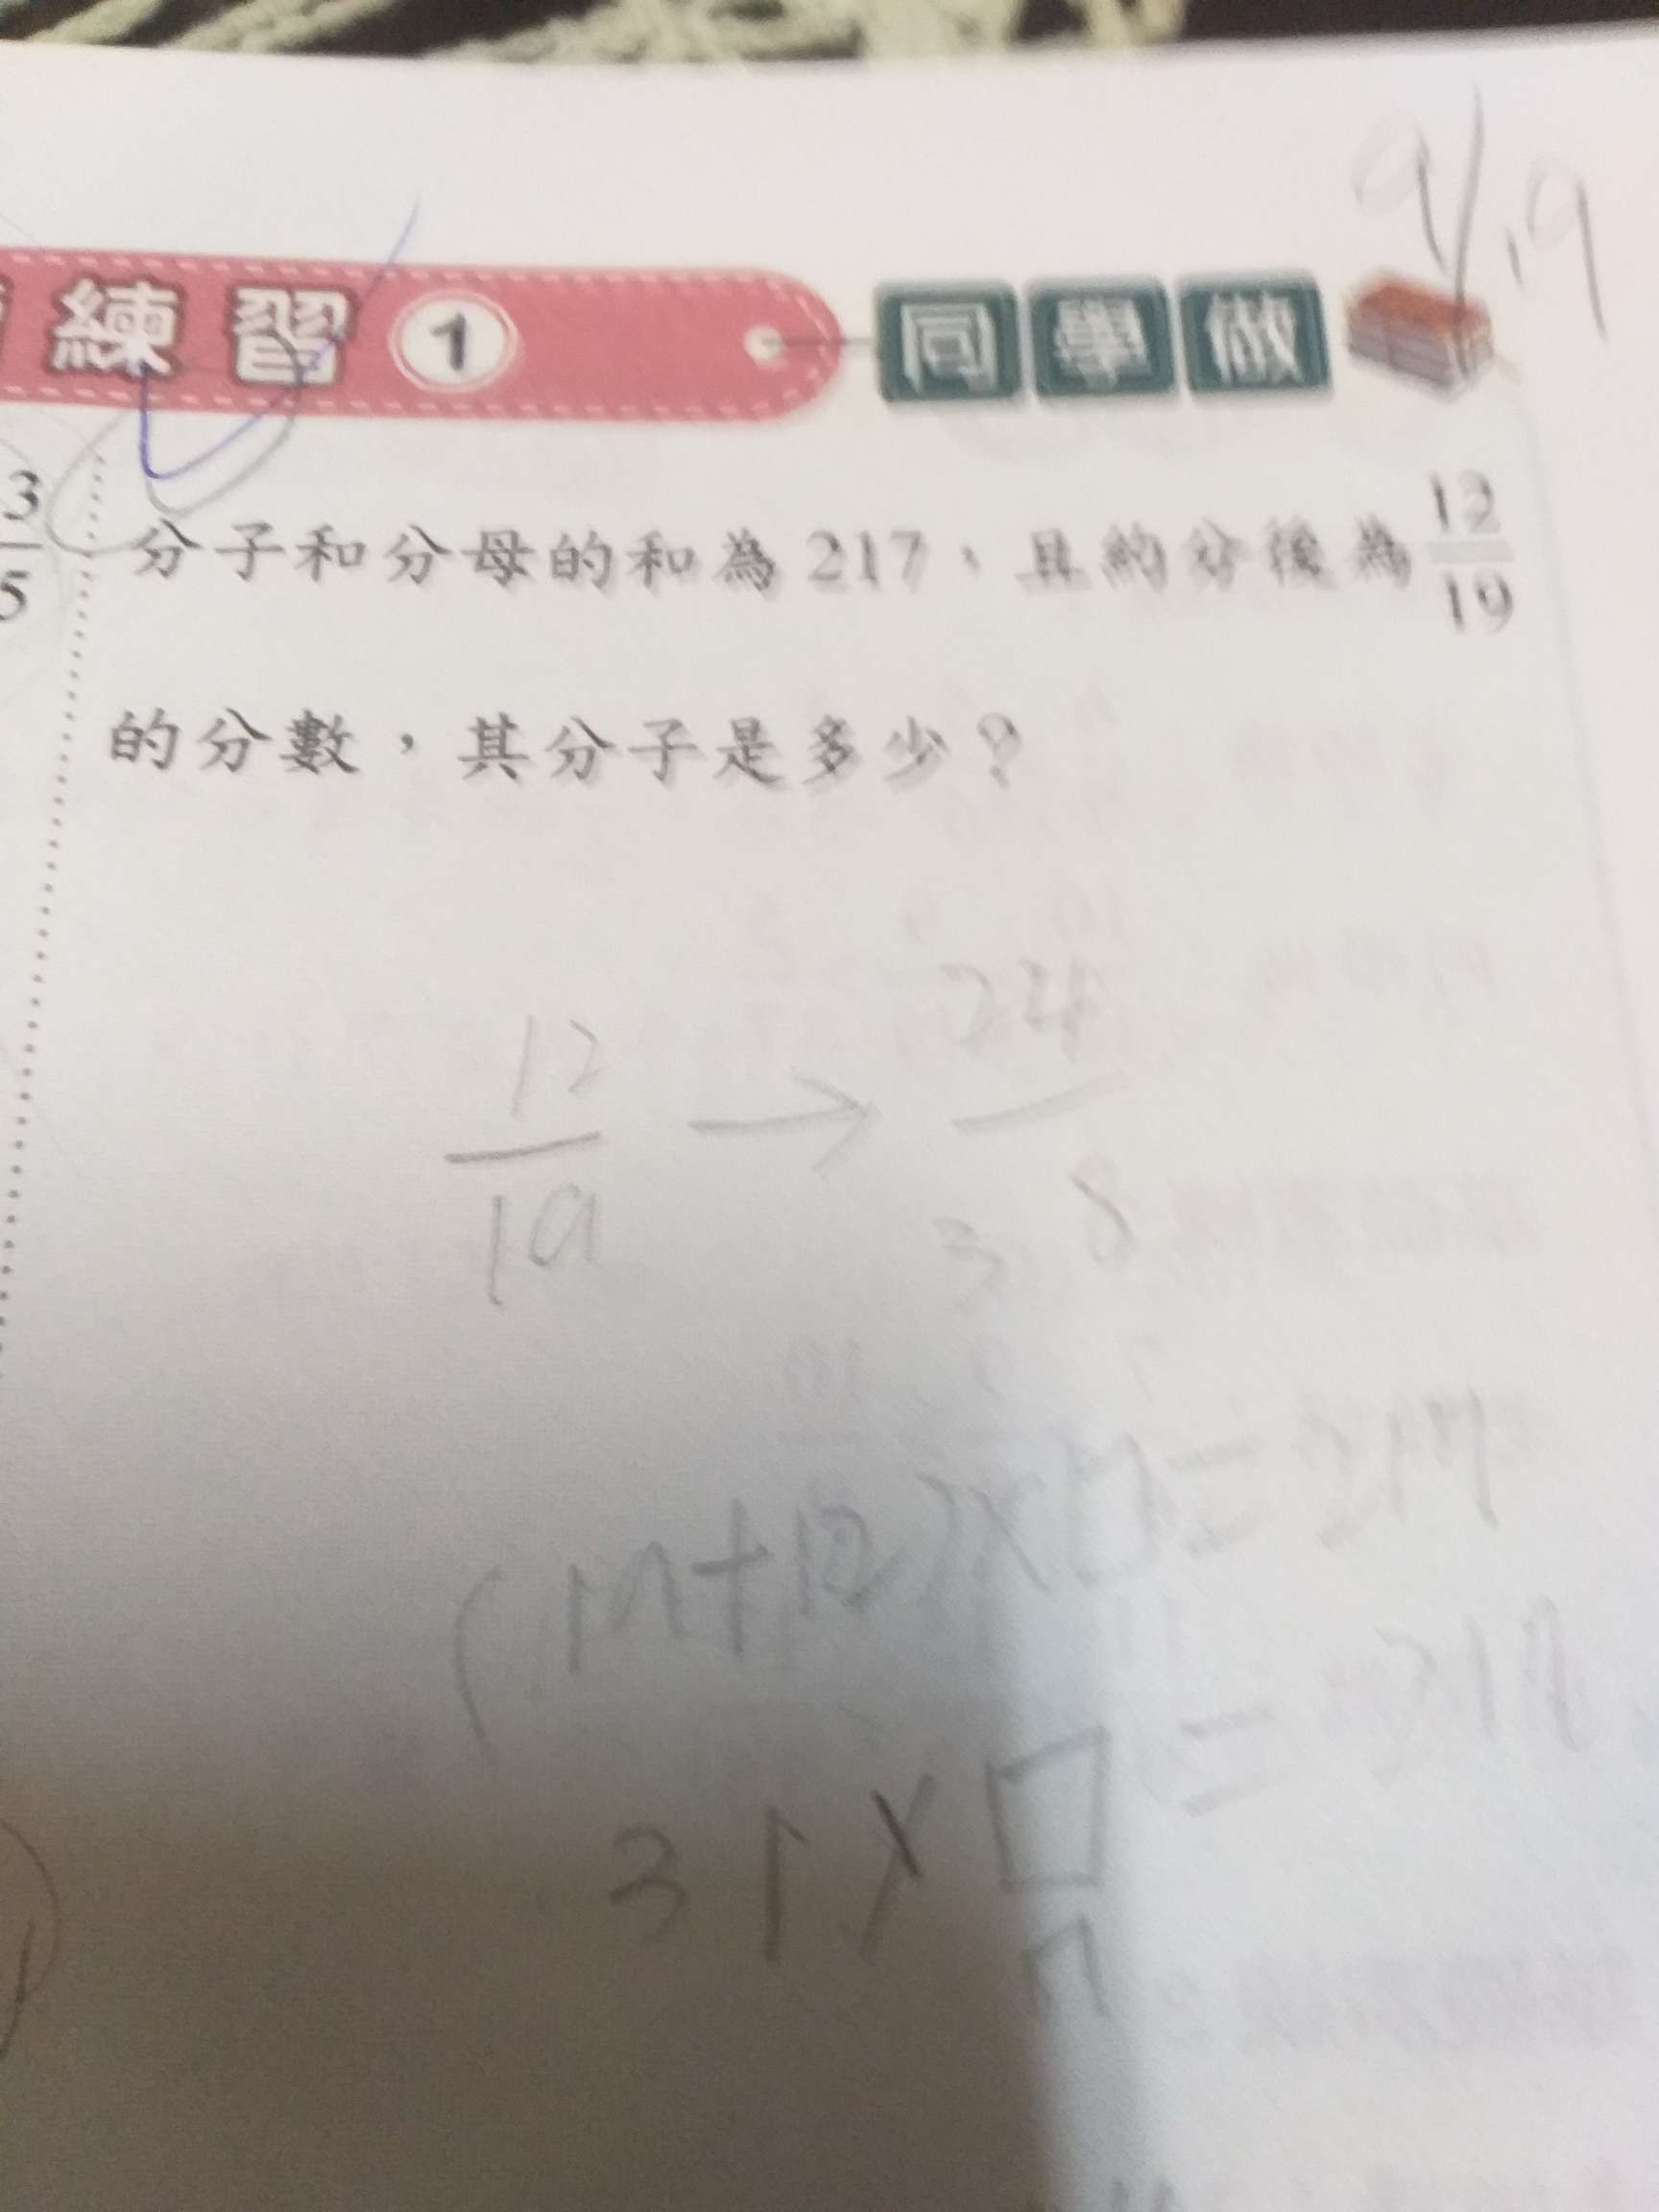 9/19
練習 1 同學做
3
5
分子和分母的和為 217,且約分後為 12/19
的分數,其分子是多少?
12/19 → 24/38
(19+12)×□=217
31×□=217
7